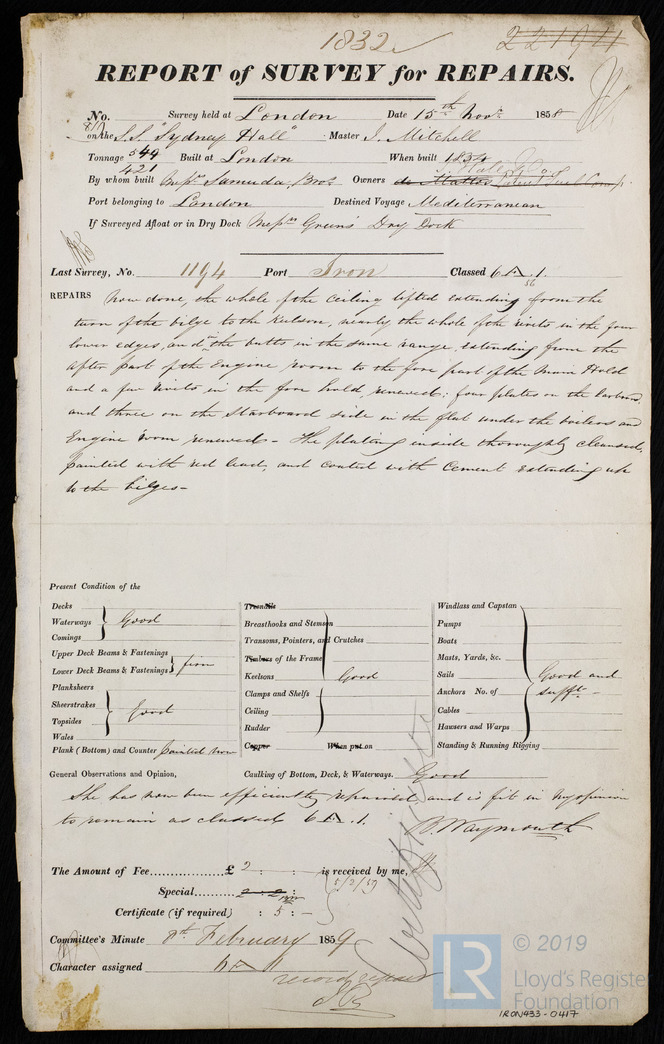 1832
22194
REPORT of SURVEY for REPAIRS.
No. Survey held at London Date 15th Novr 1858
on the S.S. "Sydney Hall" Master J. Mitchell
Tonnage 549 Built at London When built 1854
421
By whom built Messrs Samuda Bros Owners
Port belonging to London Destined Voyage Mediterranean
If Surveyed Afloat or in Dry Dock Messrs Green's Dry Dock
Last Survey, No. 1194 Port Iron Classed 6 A 1.
56
REPAIRS now done, the whole of the ceiling lifted extending from the
turn of the bilge to the keelson, nearly the whole of the rivets in the four
lower edges, and in the butts in the same range, extending from the
after part of the Engine room to the fore part of the Main Hold
and a few rivets in the fore hold, renewed; four plates on the larboard
and three on the Starboard side in the flat under the boilers and
Engine room renewed - The plating inside thoroughly cleansed,
painted with red lead, and coated with Cement extending up
to the bilges -
Present Condition of the
Decks
Waterways Good
Comings
Upper Deck Beams & Fastenings
Lower Deck Beams & Fastenings firm
Planksheers
Sheerstrakes
Topsides Good
Wales
Plank (Bottom) and Counter painted iron
Treenails
Breasthooks and Stemson
Transoms, Pointers, and Crutches
Timbers of the Frame
Keelsons Good
Clamps and Shelfs
Ceiling
Rudder
Copper When put on
Windlass and Capstan
Pumps
Boats
Masts, Yards, &c.
Sails Good and
Anchors No. of sufft -
Cables
Hawsers and Warps
Standing & Running Rigging
General Observations and Opinion, Caulking of Bottom, Deck, & Waterways. Good
She has now been efficiently repaired, and is fit in my opinion
to remain as classed 6 A 1.
B. Waymouth
The Amount of Fee............... £ 2 : : is received by me,
Special......... 2 - 2 : 5/2/59
Certificate (if required) : 5 : -
Committee's Minute 8th February 1859
Character assigned 6 A 1
record repairs
© 2019
LR Lloyd's Register
Foundation
IRON433-0417